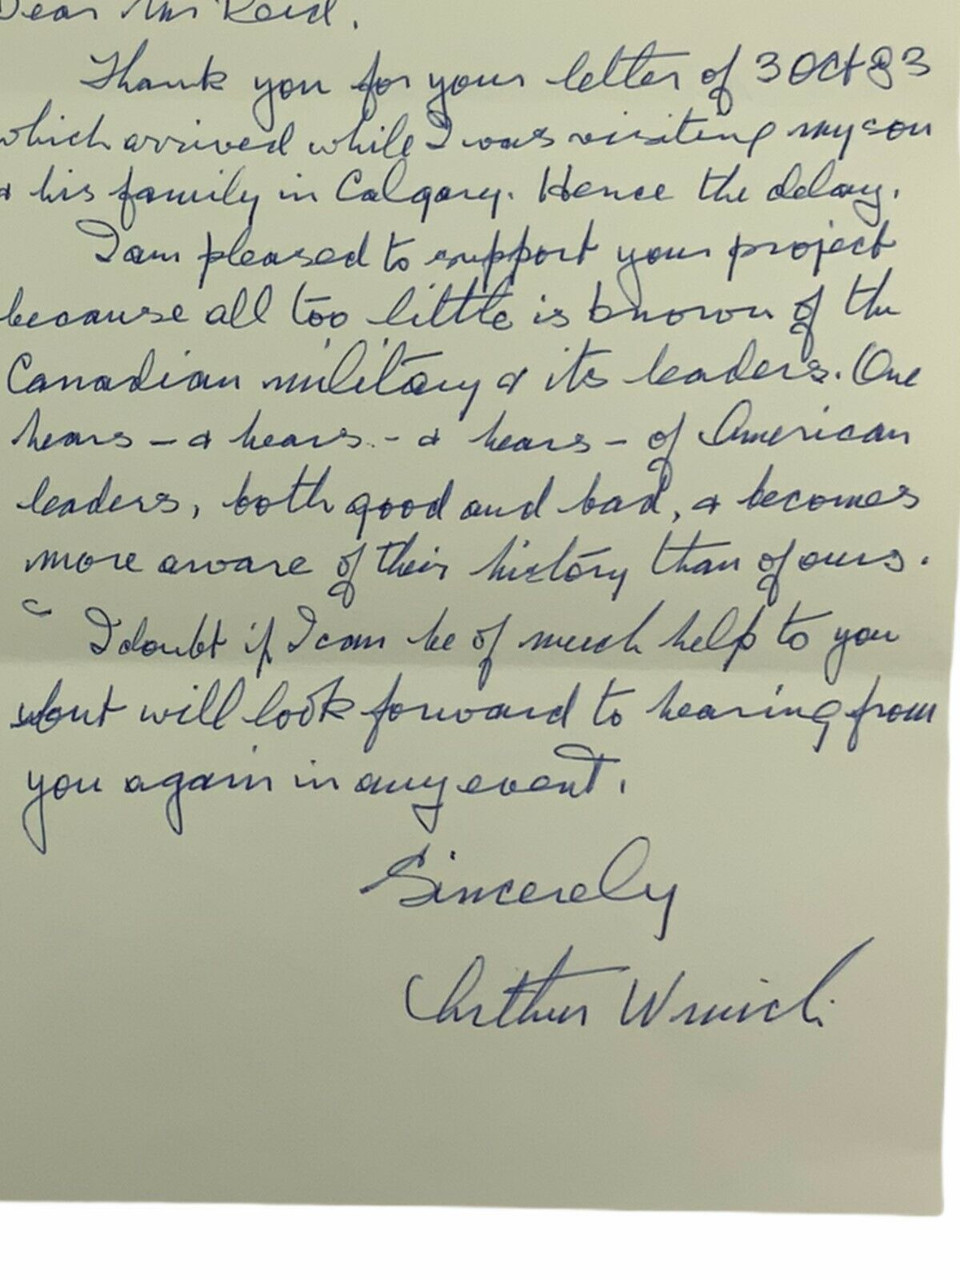 Dear Mr Reid,
Thank you for your letter of 3 Oct 83
which arrived while I was visiting my son
& his family in Calgary. Hence the delay.
I am pleased to support your project
because all too little is known of the
Canadian military & its leaders. One
hears - & hears - & hears - of American
leaders, both good and bad, & becomes
more aware of their history than of ours.
I doubt if I can be of much help to you
but will look forward to hearing from
you again in any event.
Sincerely
Arthur